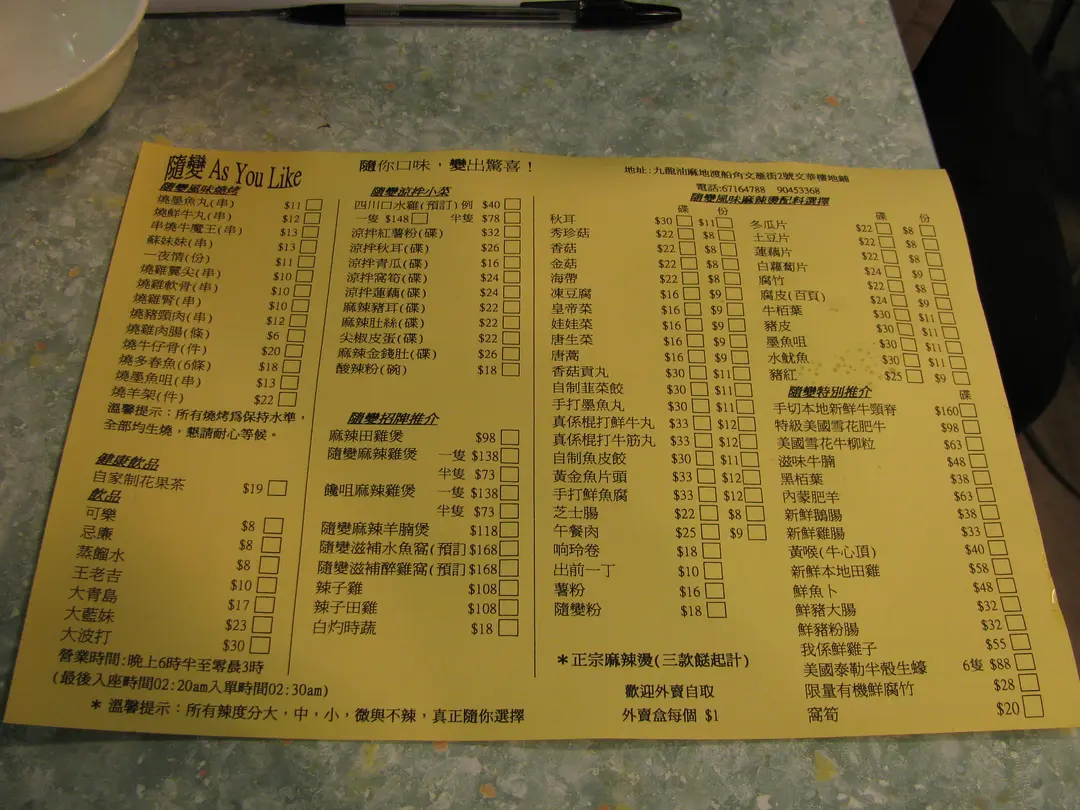 隨變 As You Like
隨你口味，變出驚喜！
地址:九龍油麻地渡船角文匯街2號文華樓地鋪
電話:67164788 90453368
隨變風味燒烤
燒墨魚丸(串) $11
燒鮮牛丸(串) $12
串燒牛魔王(串) $13
蘇妹妹(串) $13
一夜情(份) $11
燒雞翼尖(串) $10
燒雞軟骨(串) $10
燒雞腎(串) $10
燒豬頸肉(串) $12
燒雞肉腸(條) $6
燒牛仔骨(件) $20
燒多春魚(6條) $18
燒墨魚咀(串) $13
燒羊架(件) $22
溫馨提示：所有燒烤為保持水準，
全部均生燒，懇請耐心等候。
健康飲品
自家制花果茶 $19
飲品
可樂 $8
忌廉 $8
蒸餾水 $8
王老吉 $10
大青島 $17
大藍妹 $23
大波打 $30
營業時間:晚上6時半至零晨3時
(最後入座時間02:20am入單時間02:30am)
＊溫馨提示：所有辣度分大，中，小，微與不辣，真正隨你選擇
隨變涼拌小菜
四川口水雞(預訂)例 $40
一隻 $148 半隻 $78
涼拌紅薯粉(碟) $32
涼拌秋耳(碟) $26
涼拌青瓜(碟) $16
涼拌窩筍(碟) $24
涼拌蓮藕(碟) $24
麻辣豬耳(碟) $22
麻辣肚絲(碟) $22
尖椒皮蛋(碟) $22
麻辣金錢肚(碟) $26
酸辣粉(碗) $18
隨變招牌推介
麻辣田雞煲 $98
隨變麻辣雞煲 一隻 $138
半隻 $73
饞咀麻辣雞煲 一隻 $138
半隻 $73
隨變麻辣羊腩煲 $118
隨變滋補水魚窩(預訂 $168
隨變滋補醉雞窩(預訂 $168
辣子雞 $108
辣子田雞 $108
白灼時蔬 $18
隨變風味麻辣燙配料選擇
碟 份
秋耳 $30 $11
秀珍菇 $22 $8
香菇 $22 $8
金菇 $22 $8
海帶 $22 $8
凍豆腐 $16 $9
皇帝菜 $16 $9
娃娃菜 $16 $9
唐生菜 $16 $9
唐蒿 $16 $9
香菇貢丸 $30 $11
自制韮菜餃 $30 $11
手打墨魚丸 $30 $11
真係棍打鮮牛丸 $33 $12
真係棍打牛筋丸 $33 $12
自制魚皮餃 $30 $11
黃金魚片頭 $33 $12
手打鮮魚腐 $33 $12
芝士腸 $22 $8
午餐肉 $25 $9
响玲卷 $18
出前一丁 $10
薯粉 $16
隨變粉 $18
＊正宗麻辣燙(三款餸起計)
歡迎外賣自取
外賣盒每個 $1
碟 份
冬瓜片 $22 $8
土豆片 $22 $8
蓮藕片 $22 $8
白蘿蔔片 $24 $9
腐竹 $22 $8
腐皮(百頁) $24 $9
牛栢葉 $30 $11
豬皮 $30 $11
墨魚咀 $30 $11
水魷魚 $30 $11
豬紅 $25 $9
隨變特別推介
碟
手切本地新鮮牛頸脊 $160
特級美國雪花肥牛 $98
美國雪花牛柳粒 $63
滋味牛腩 $48
黑栢葉 $38
內蒙肥羊 $63
新鮮鵝腸 $38
新鮮雞腸 $33
黃喉(牛心頂) $40
新鮮本地田雞 $58
鮮魚卜 $48
鮮豬大腸 $32
鮮豬粉腸 $32
我係鮮雞子 $55
美國泰勒半殼生蠔 6隻 $88
限量有機鮮腐竹 $28
窩筍 $20